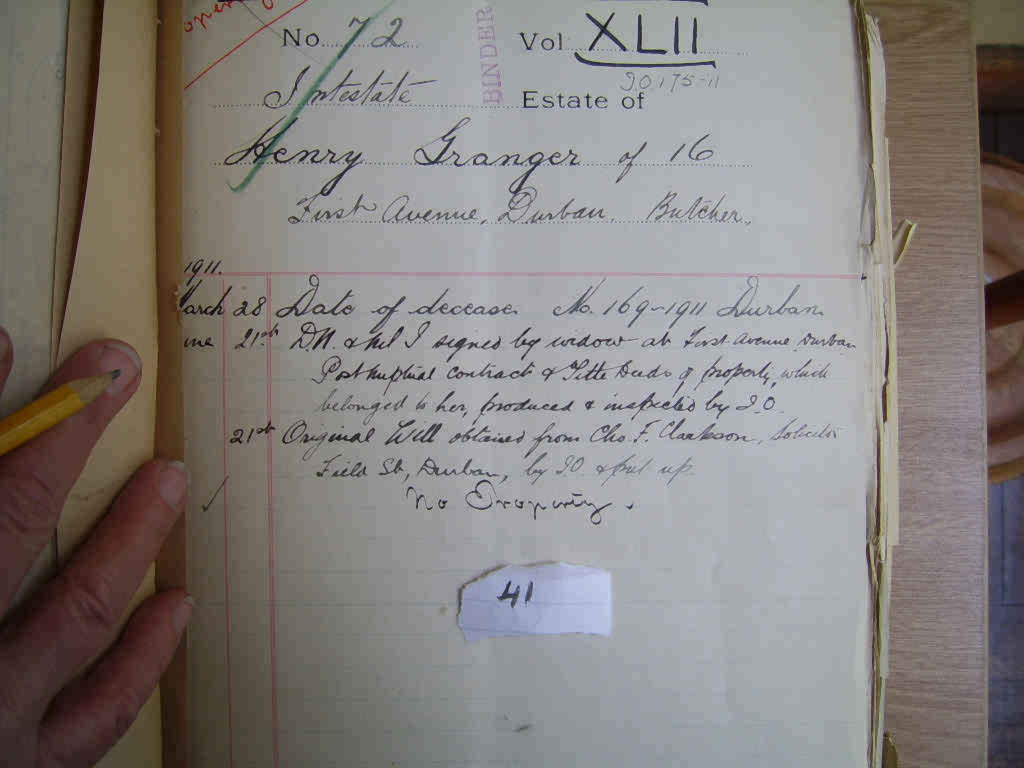 No 72 Vol XLII
BINDER
I0175-11
Intestate Estate of
Henry Granger of 16
First Avenue, Durban. Butcher.
1911.
March 28 Date of decease. No. 169-1911 Durban
21st D.N. & signed by widow at First Avenue Durban
Postnuptial contract & Title Deeds of property, which
belonged to her, produced & inspected by I.O.
21st Original Will obtained from Chs. F. Clarkson, Solicitor
Field St, Durban, by I.O & put up.
No Property.
41